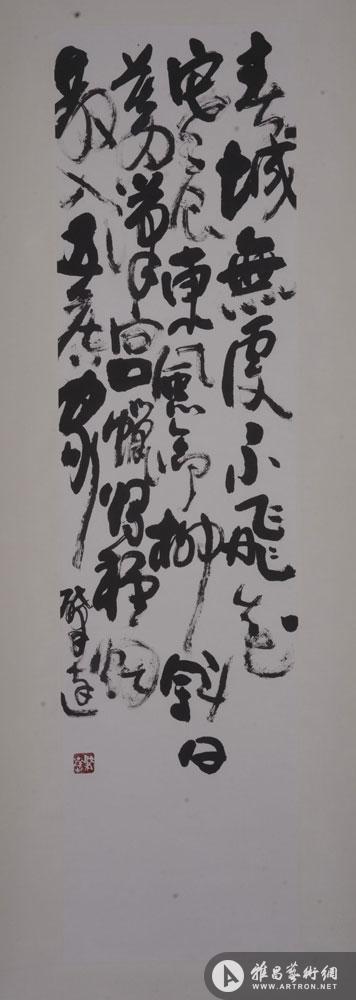 春城無處不飛花
寒食東風御柳斜日
暮漢宮蠟燭輕烟
散入五侯家
雅昌藝術網
WWW.ARTRON.NET